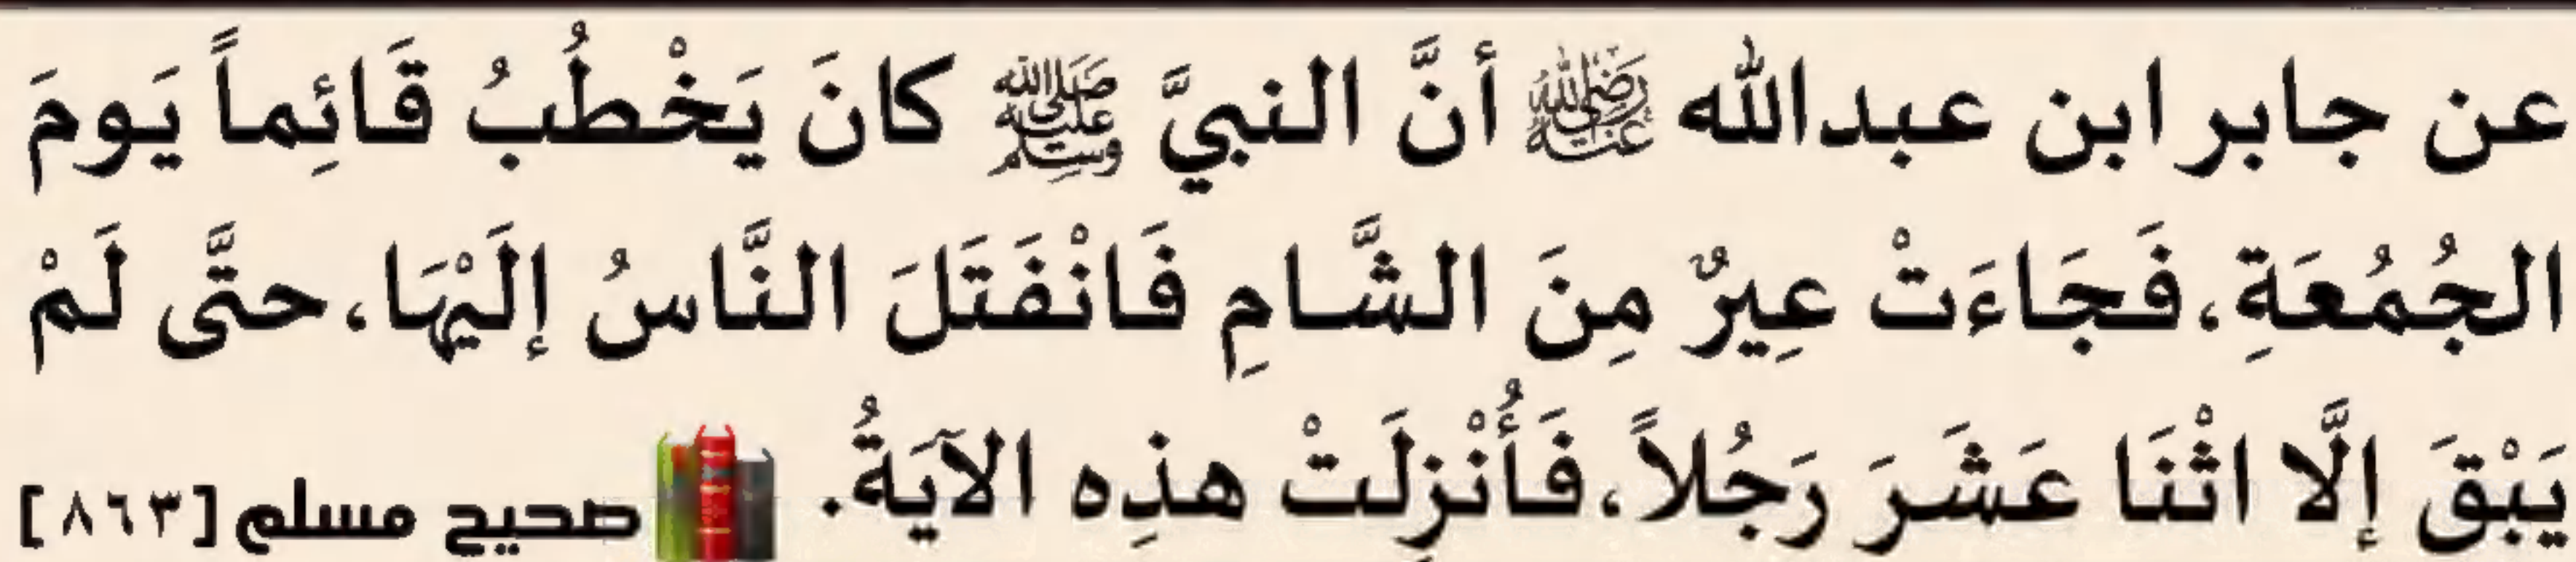 عن جابر ابن عبدالله ﵁ أنَّ النبيَّ ﷺ كانَ يَخْطُبُ قَائِماً يَومَ
الجُمُعَةِ، فَجَاءَتْ عِيرٌ مِنَ الشَّامِ فَانْفَتَلَ النَّاسُ إلَيْهَا، حتَّى لَمْ
يَبْقَ إلَّا اثْنَا عَشَرَ رَجُلاً، فَأُنْزِلَتْ هذِه الآيَةُ. صحيح مسلم [٨٦٣]